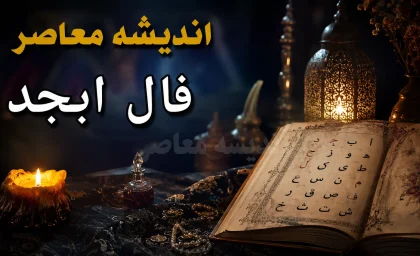 اندیشه معاصر
فال ابجد
اندیشه معاصر
ا ب ج د
ه و ز ح
ط ی ک ل